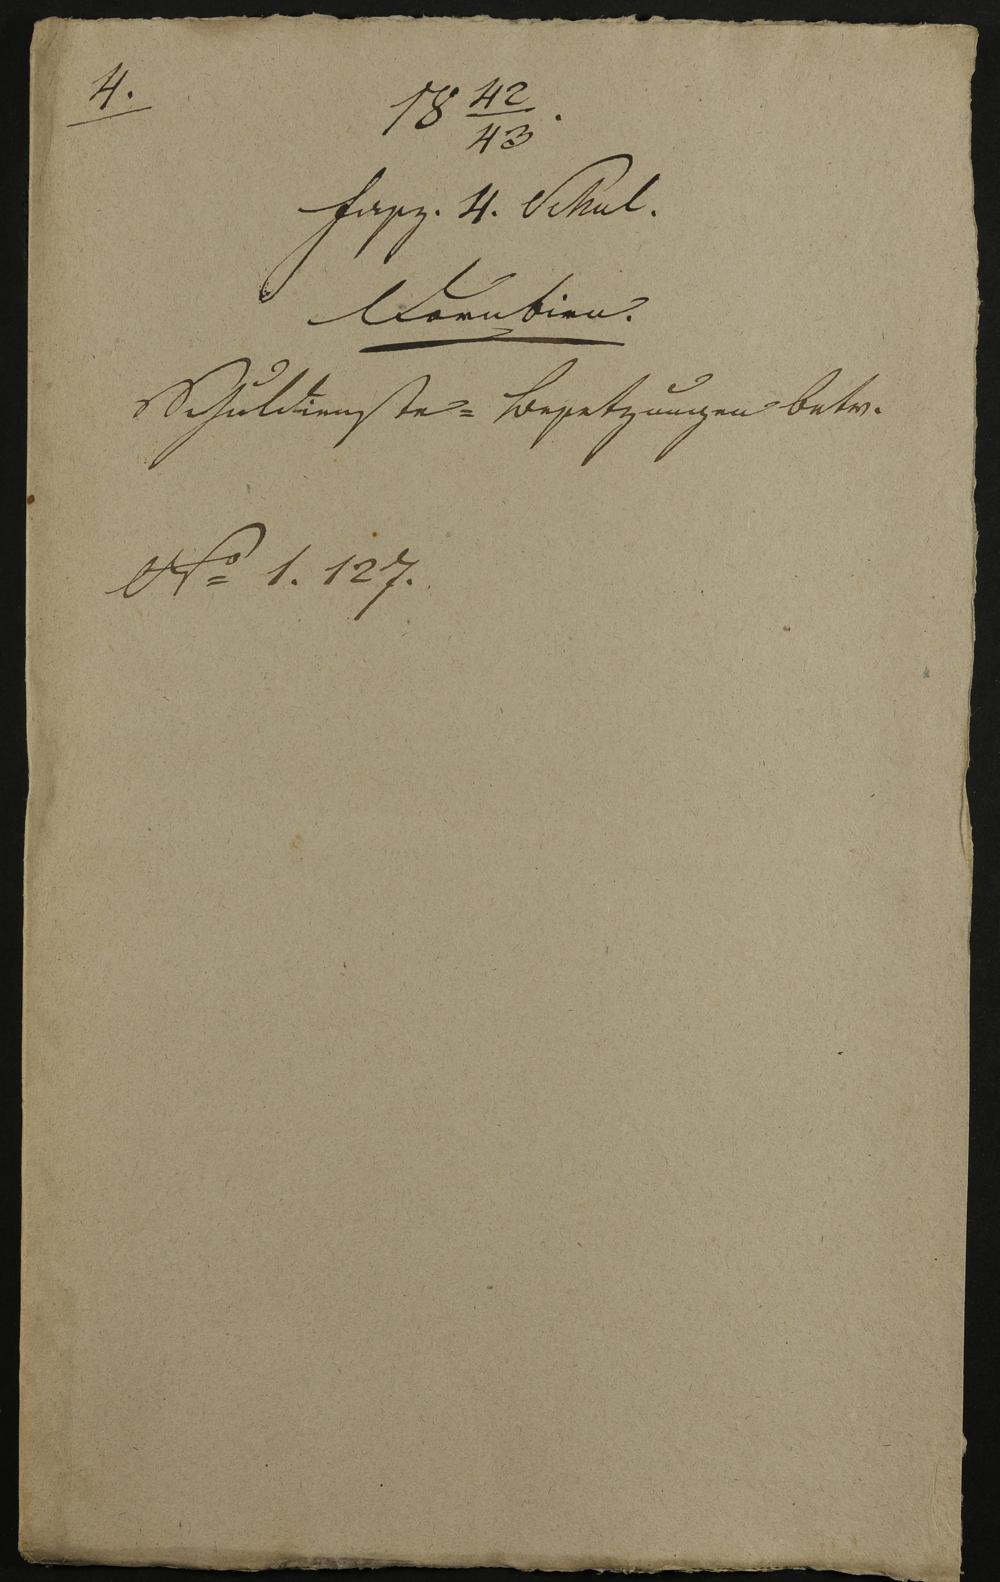 4.
18 42/43.
Fasz. 4. Schul.
Dornbirn.
Schuldienste=Besetzungen betr.
No 1. 127.